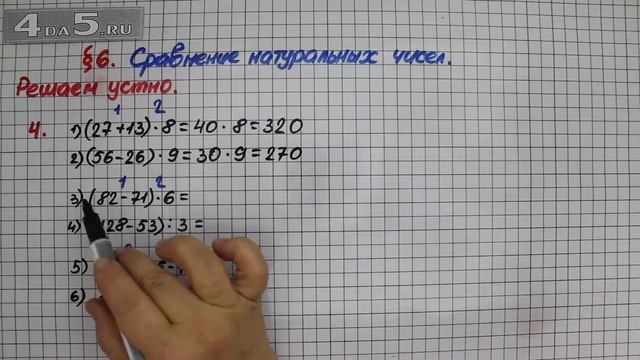 4DA5.RU
§6. Сравнение натуральных чисел.
Решаем устно.
1 2
4. 1) (27+13)·8=40·8=320
2) (56-26)·9=30·9=270
1 2
3) (82-71)·6=
4) 28-53):3=
5)
6)